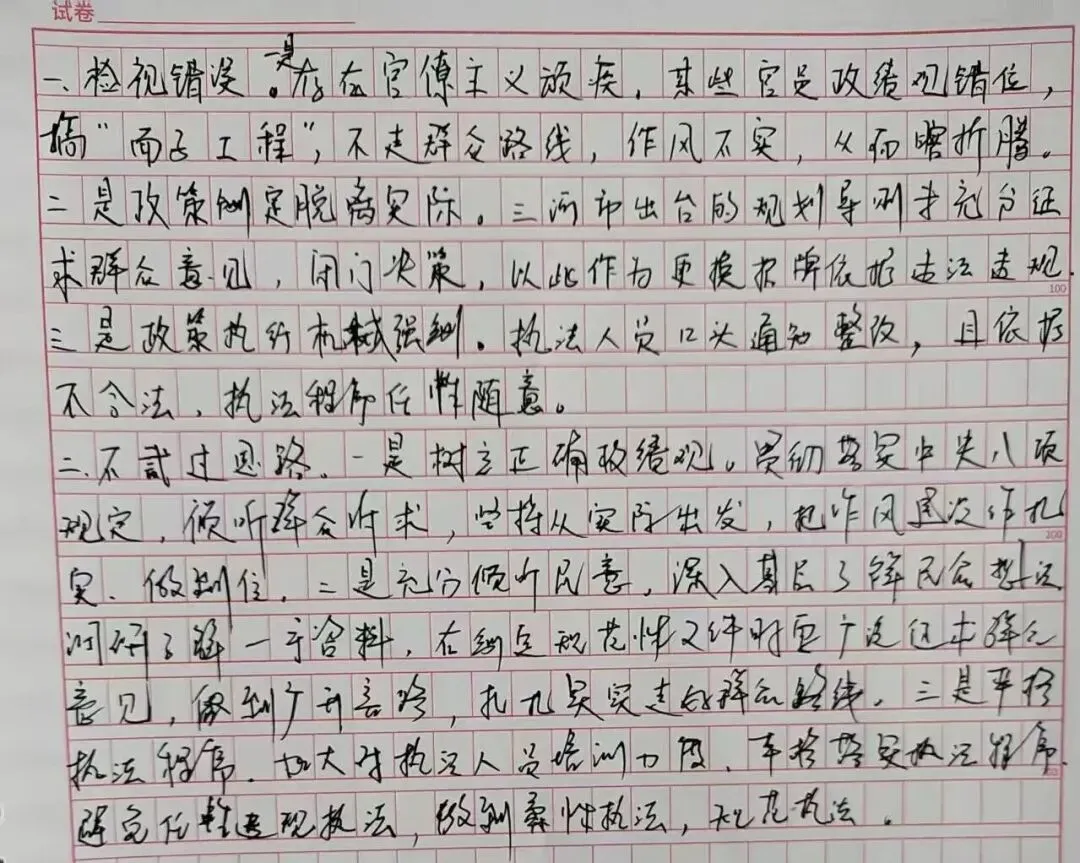 试卷
一、检视错误。一是存在官僚主义顽疾，某些官员政绩观错位，
搞“面子工程”，不走群众路线，作风不实，从而瞎折腾。
二是政策制定脱离实际。三河市出台的规划导则未充分征
求群众意见，闭门决策，以此作为更换招牌依据违法违规.
100
三是政策执行机械强制。执法人员口头通知整改，且依据
不合法，执法程序任性随意。
二、不贰过思路。一是树立正确政绩观。贯彻落实中央八项
规定，倾听群众诉求，坚持从实际出发，把作风建设作扎
200
实、做到位。二是充分倾听民意，深入基层了解民众想法
调研了解一手资料，在制定规范性文件时要广泛征求群众
意见，做到广开言路，扎扎实实走好群众路线。三是严格
执法程序。加大对执法人员培训力度，严格落实执法程序
避免任性违规执法，做到柔性执法，规范执法。